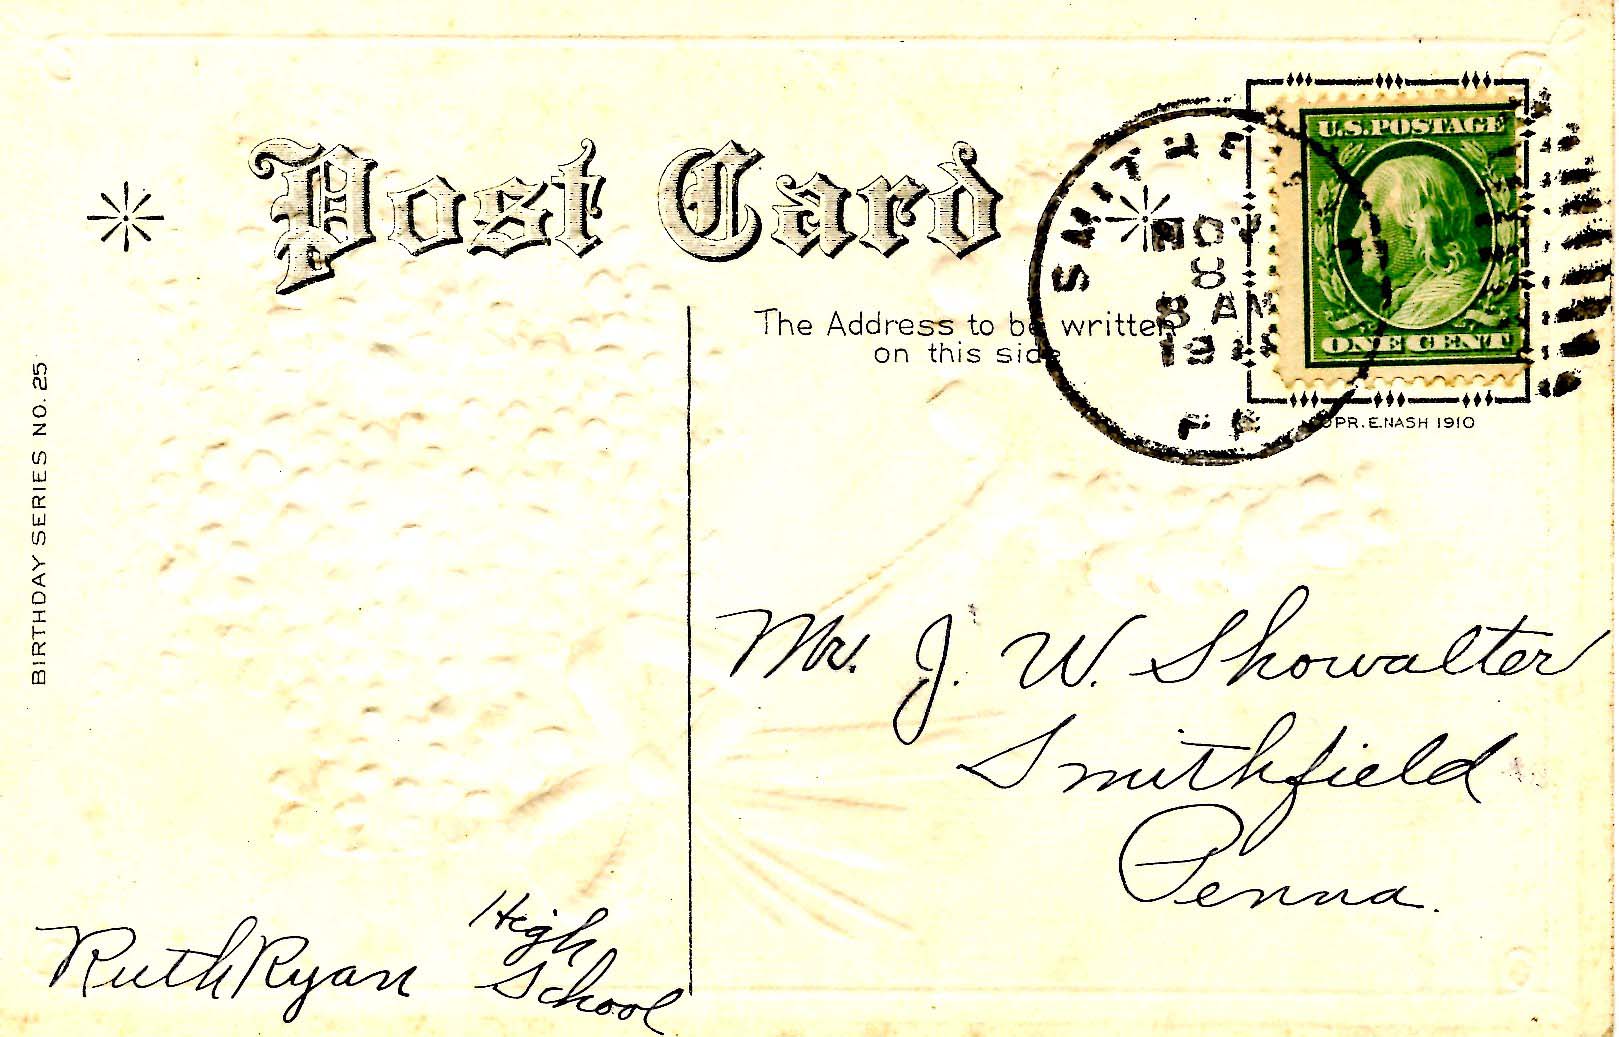 Post Card
The Address to be written
on this side
BIRTHDAY SERIES NO. 25
NOV
8
8 AM
U.S. POSTAGE
ONE CENT
COPR. E. NASH 1910
Mr. J. W. Showalter
Smithfield
Penna.
Ruth Ryan
High
School